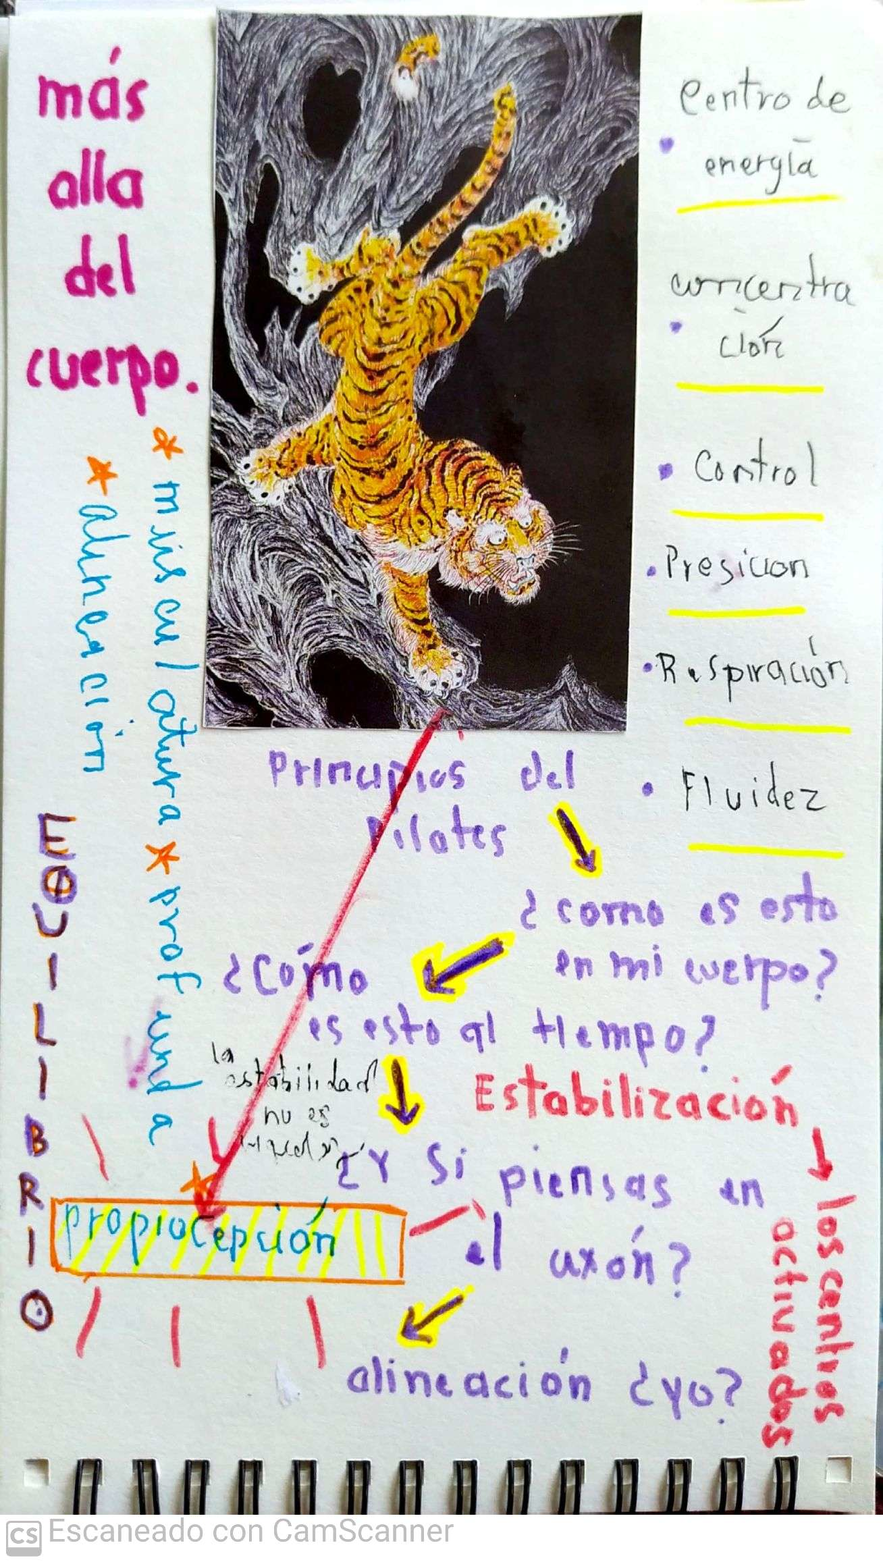 más
alla
del
cuerpo.
* musculatura * profunda
* alineación
EQUILIBRIO
Centro de
• energía
concentra
• ción
• Control
• Presicion
• Respiración
• Fluidez
Principios del
pilates
¿como es esto
en mi cuerpo?
¿Cómo
es esto al tiempo?
la
estabilidad
no es
Estabilización
los centros
activados
¿Y si piensas en
el axón?
propiocepción
alineación ¿yo?
CS Escaneado con CamScanner